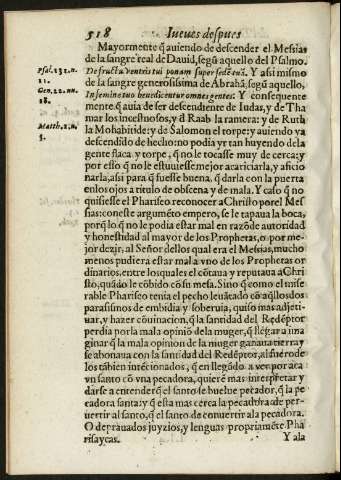 518 Iueues despues
Mayormente q̃ auiendo de descender el Mesias
de la sangre real de Dauid, segũ aquello del Psalmo.
Psal. 131. n. 11.
De fructu ventris tui ponam super sedẽ tuã. Y asi mismo
de la sangre generosisima de Abrahã, segũ aquello,
Gen. 22. nu. 18.
In semine tuo benedicentur omnes gentes: Y consequente
mente q̃ auia de ser descendiente de Iudas, y de Tha
mar los incestuosos, y đ Raab la ramera: y de Ruth
Matth. 1. n. 5.
la Mohabitide: y de Salomon el torpe: y auiendo ya
descendido de hecho: no podia yr tan huyendo de la
gente flaca y torpe, q̃ no le tocasse muy de cerca: y
por esso q̃ no le estuuiesse mejor acariciarla, y aficio
narla, asi para q̃ fuesse buena, q̃ darla con la puerta
en los ojos a titulo de obscena y de mala. Y caso q̃ no
quisiesse el Phariseo reconocer a Christo por el Mes
sias: con este argumẽto empero, se le tapaua la boca,
porq̃ lo q̃ no le podia estar mal en razõ de autoridad
y honestidad al mayor de los Prophetas, o por me-
jor dezir, al Señor dellos qual era el Mesias, mucho
menos pudiera estar mal a vno de los Prophetas or
dinarios, entre los quales el cõtaua y reputaua a Chri
sto, quãdo le cõbido cõ su mesa. Sino q̃ como el mise
rable Phariseo tenia el pecho leuãtado cõ aq̃llos dos
parasismos de embidia y soberuia, quiso mas adjeti-
uar, y hazer cõuinacion, q̃ la santidad del Redẽptor
perdia por la mala opiniõ de la muger, q̃ llegar a ima
ginar q̃ la mala opinion de la muger ganaua tierra y
se abonaua con la santidad del Redẽptor, al fuero de
los tãbien iniectionados, q̃ en llegãdo a ver por aca
vn santo cõ vna pecadora, quierẽ mas interpretar y
darse a entender q̃ el santo se buelue pecador, q̃ la pe
cadora santa: y q̃ esta mas cerca la pecadora de per-
uertir al santo, q̃ el santo de conuertir a la pecadora.
O deprauados juyzios, y lenguas propriamẽte Pha
risaycas. Y a la